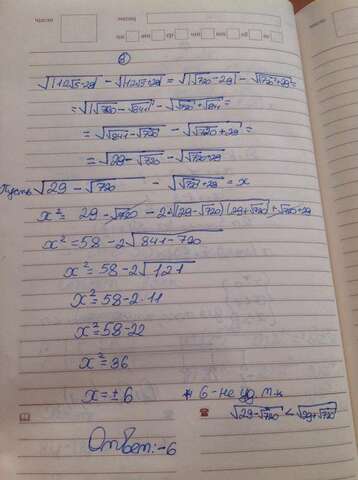 8)
√|12√5-29| - √|12√5+29| = √|√720-29| - √|√720+29| =
= √|√720-√841| - √|√720+√841| =
= √(√841-√720) - √(√720+29) =
= √(29-√720) - √(√720+29)
Пусть √(29-√720) - √(√720+29) = x
x² = 29-√720 - 2√((29-√720)(29+√720)) + √720+29
x² = 58-2√(841-720)
x² = 58-2√121
x² = 58-2·11
x² = 58-22
x² = 36
x = ±6 6-не уд. т.к
√(29-√720) < √(29+√720)
Ответ: -6